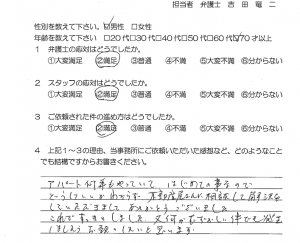 担当者 弁護士 吉田竜二
性別を教えて下さい。☑男性 □女性
年齢を教えて下さい □20代□30代□40代□50代□60代☑70才以上
1 弁護士の応対はどうでしたか。
①大変満足 ②満足 ③普通 ④不満 ⑤大変不満 ⑥分からない
2 スタッフの応対はどうでしたか。
①大変満足 ②満足 ③普通 ④不満 ⑤大変不満 ⑥分からない
3 ご依頼された件の進め方はどうでしたか。
①大変満足 ②満足 ③普通 ④不満 ⑤大変不満 ⑥分からない
4 上記1~3の理由、当事務所にご依頼いただいた感想など、どのようなこと
でも結構ですからお書きください。
アパート何年もやっていて はじめての事なので
どうしていいかわからず 不動産屋さんに相談して
ありがとうございました